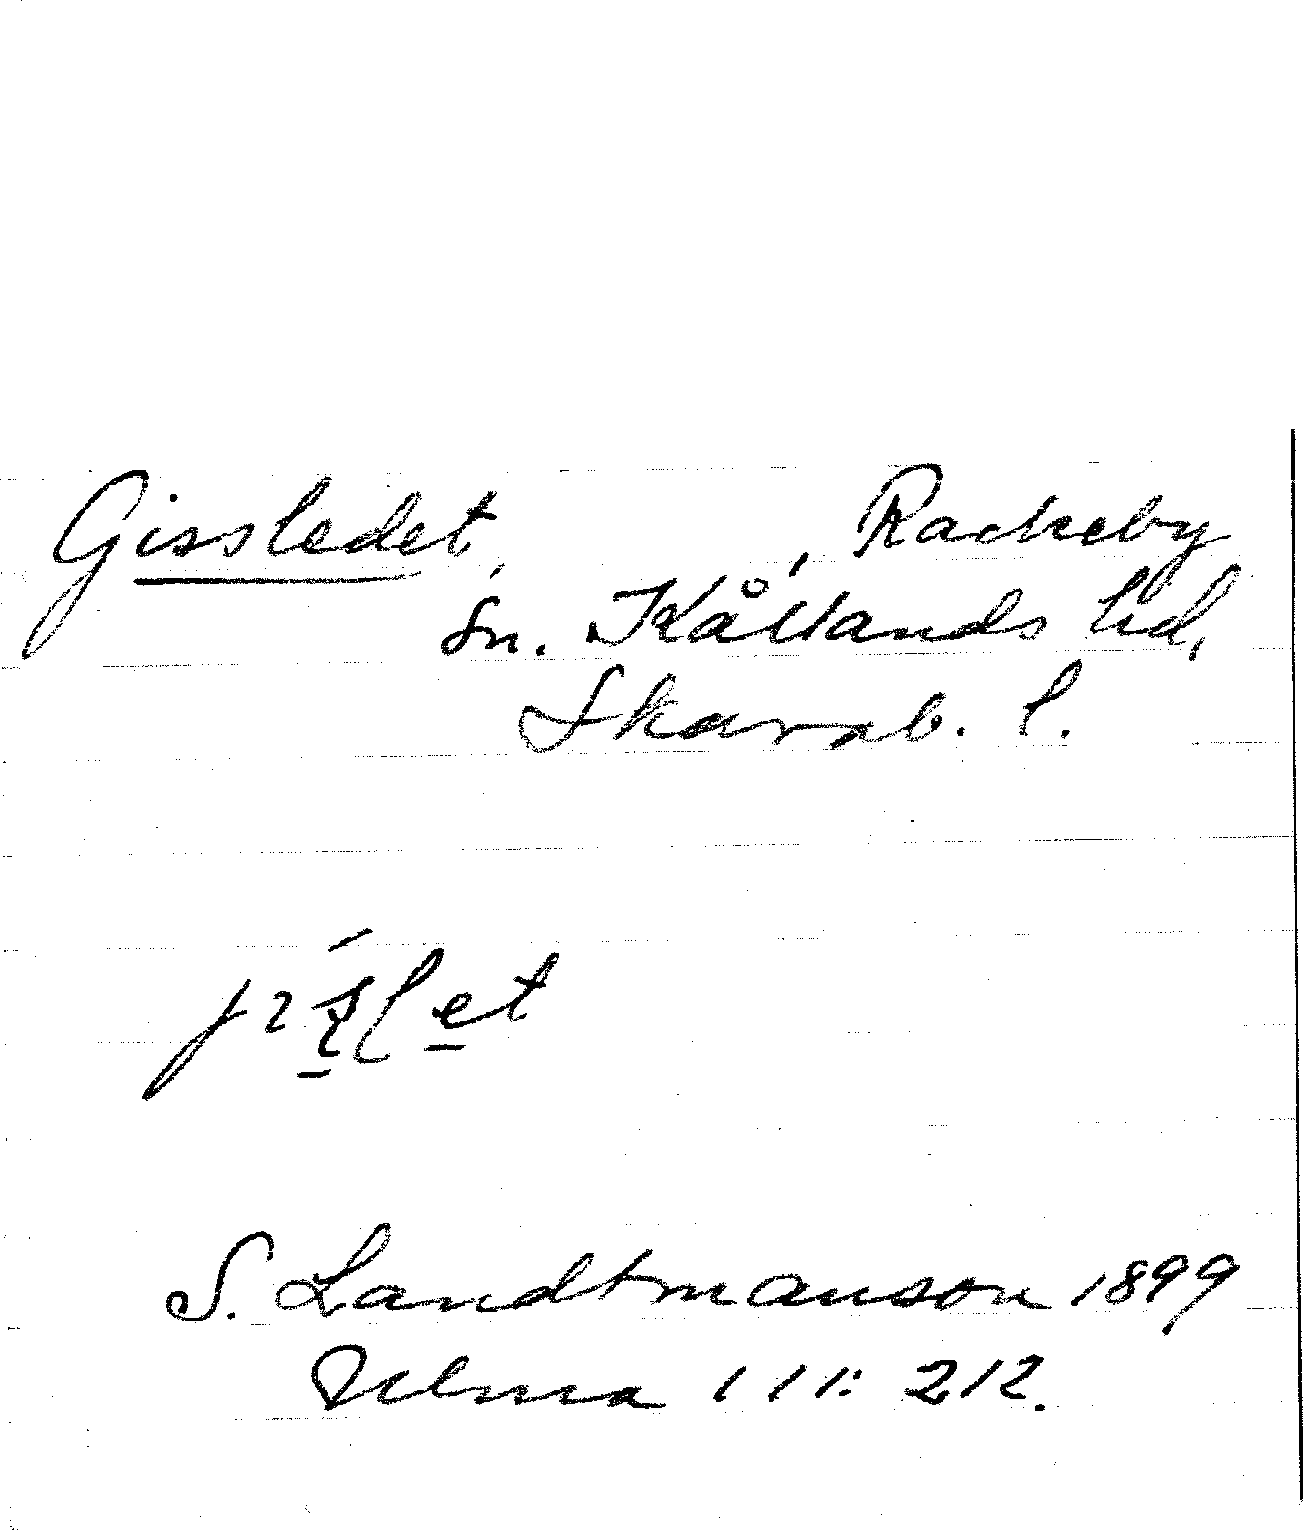 Gissledet, , Rackeby
sn. Kållands hd,
Skarab. l.
S. Landtmanson 1899
Ulma 111: 212.